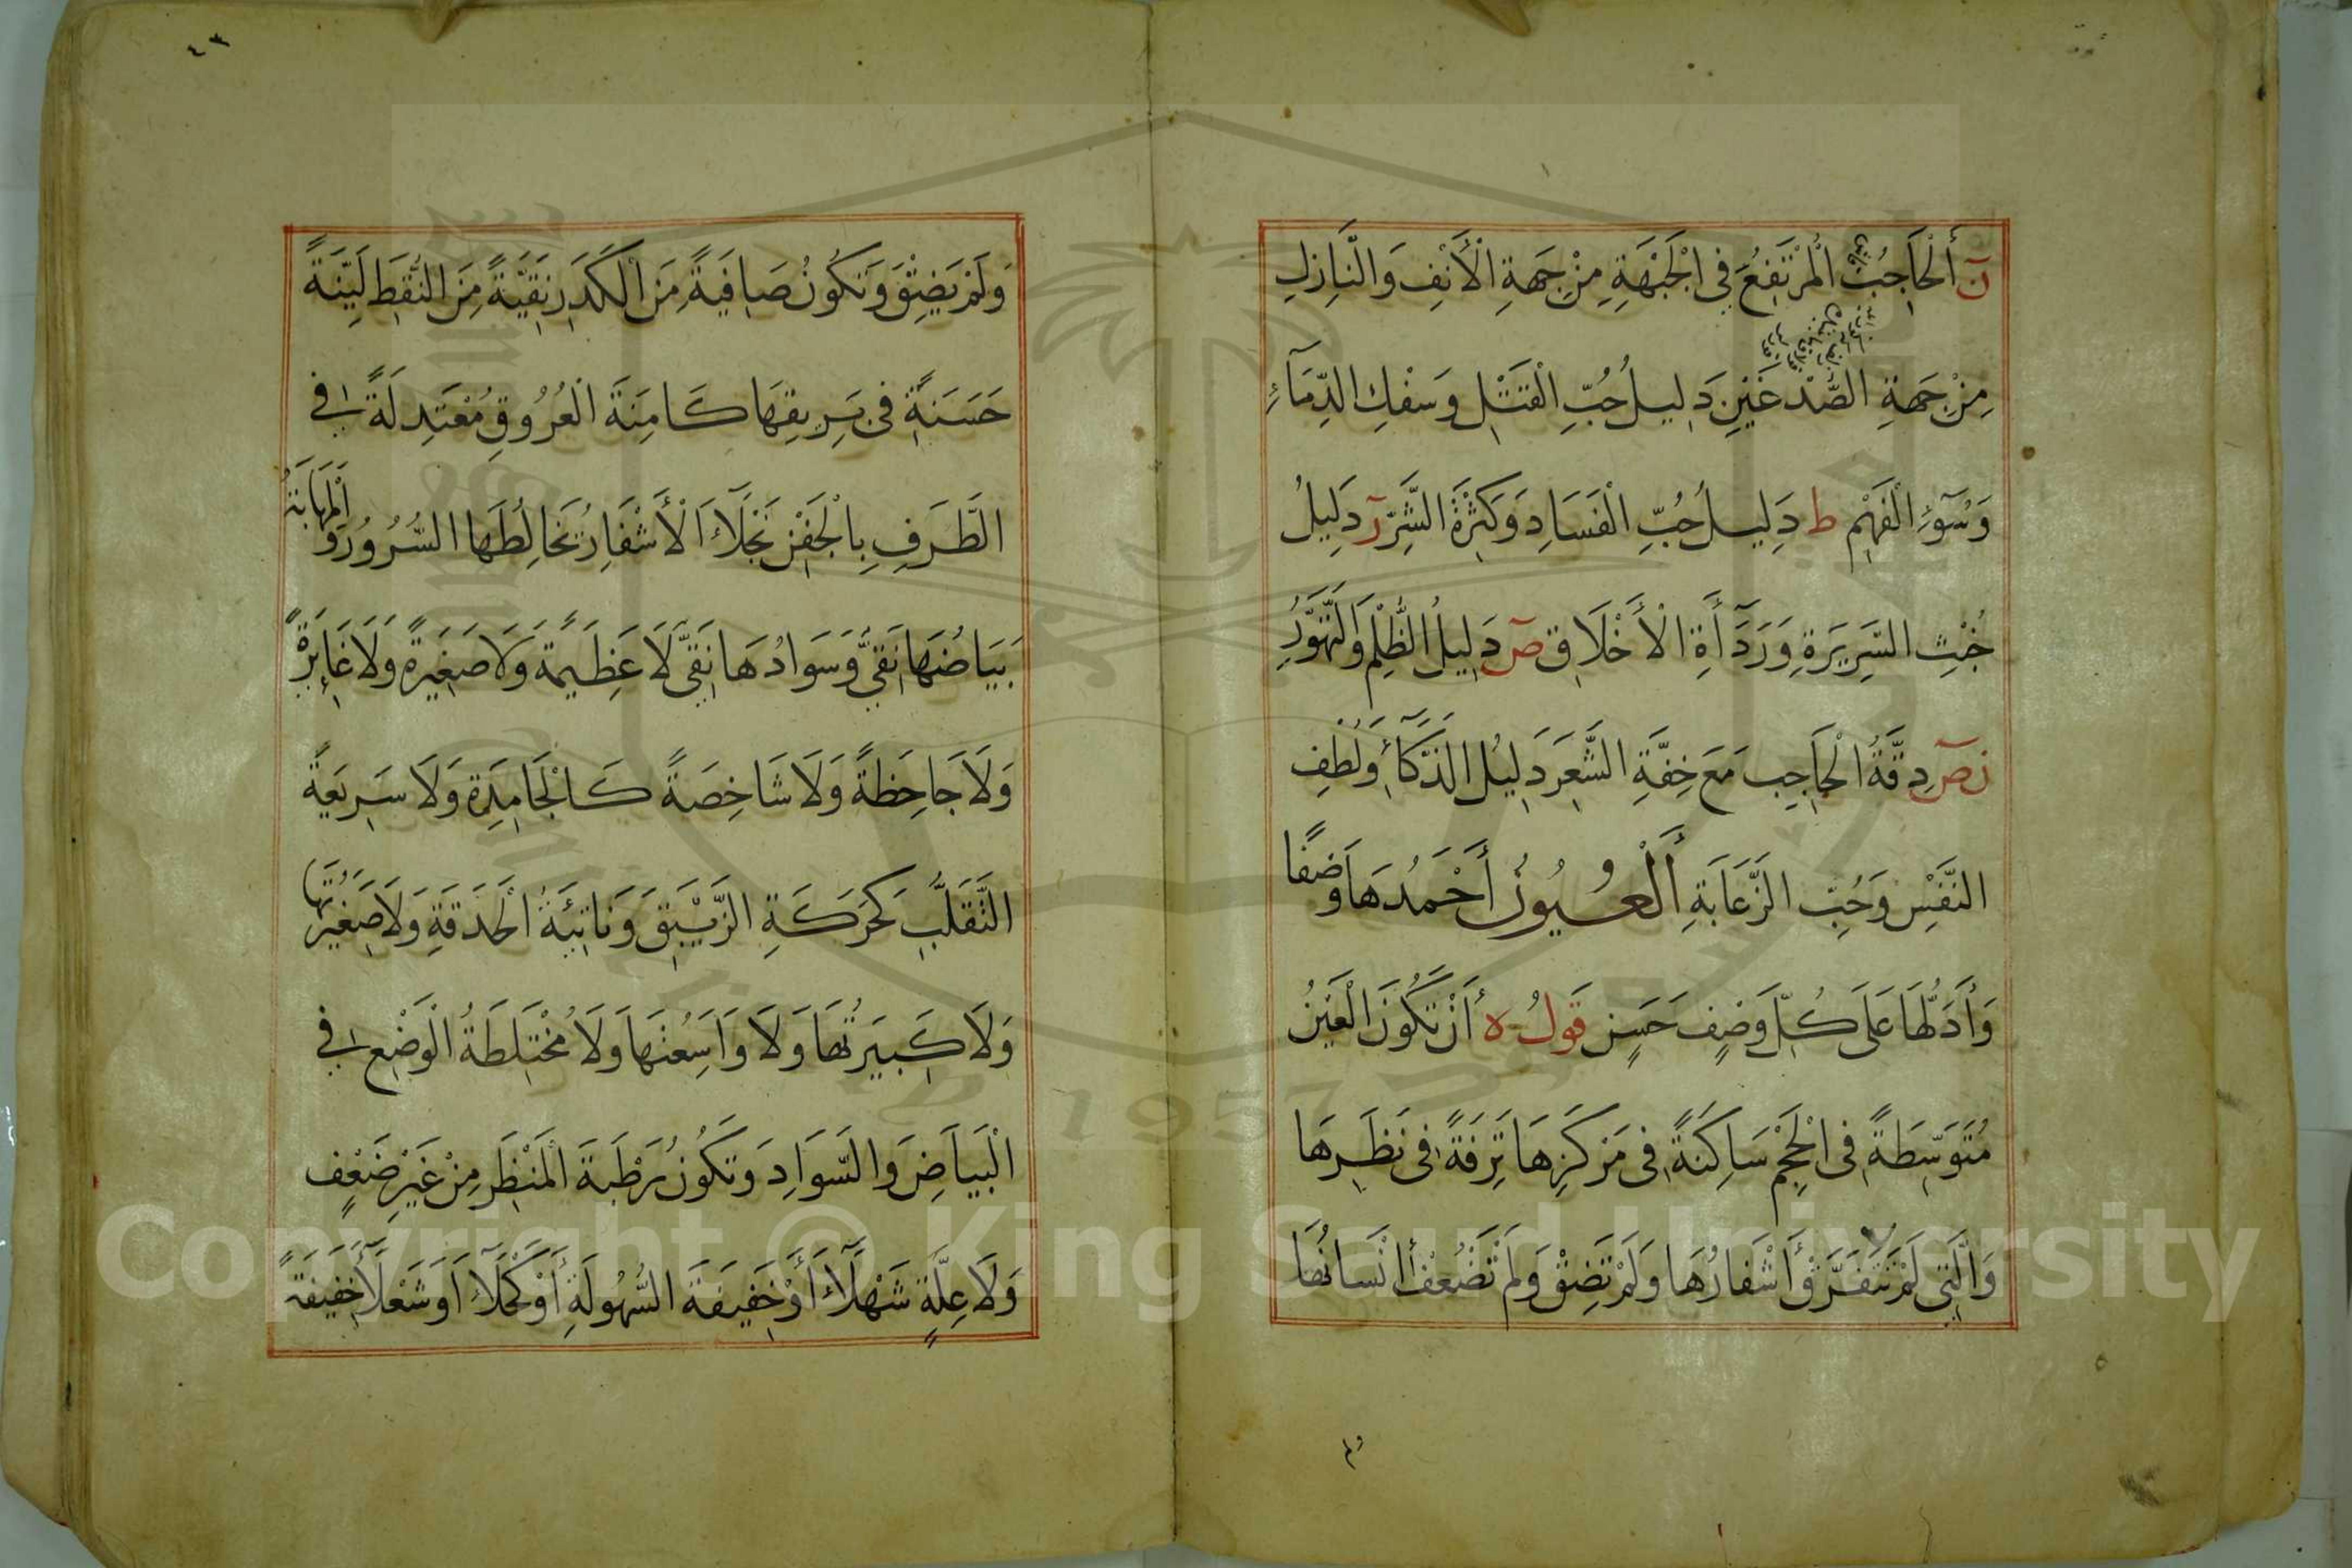 ن أَلْحَاجِبُ الْمُرْتَفِعُ فِي الْجَبْهَةِ مِنْ جَهَةِ الْأَنْفِ وَالنَّازِلِ
مِنْ جَهَةِ الصُّدْغَيْنِ دَلِيلُ حُبِّ الْقَتْلِ وَسَفْكِ الدِّمَآءِ
وَسُوٓءِ الْفَهْمِ ط دَلِيلُ حُبِّ الْفَسَادِ وَكَثْرَةَ الشَّرِّ ر دَلِيلُ
خُبْثِ السَّرِيرَةِ وَرَدَّأَةِ الْأَخْلَاقِ ص دَلِيلُ الظُّلْمِ وَالتَّهَوُّرِ
ن ص دِقَّةُ الْحَاجِبِ مَعَ خِفَّةِ الشَّعَرِ دَلِيلُ الذَّكَآءِ وَلُطْفِ
النَّفْسِ وَحُبِّ الزَّعَابَةِ أَلْعُيُونُ أَحْمَدُهَا وَصْفًا
وَأَدَلُّهَا عَلَى كُلِّ وَصْفٍ حَسَنٍ قَولُ ه أَنْ تَكُونَ الْعَيْنُ
مُتَوَسِّطَةً فِي الْحَجْمِ سَاكِنَةً فِي مَرْكَزِهَا تَرِفَةً فِي نَظَرِهَا
وَالَّتِي لَمْ تَتَفَرَّقْ أَشْفَارُهَا وَلَمْ تَضِقْ وَلَمْ تَضْعُفْ أَنْسَانُهَا
وَلَمْ يَضِقْ وَتَكُونُ صَافِيَةً مِنَ الْكَدَرِ نَقِيَّةً مِنَ النُّقَطِ لَيِّنَةً
حَسَنَةً فِي بَرِيقِهَا كَامِنَةَ الْعُرُوقِ مُعْتَدِلَةً فِي
الطَّرَفِ بِالْجَفْنِ نَجْلَآءَ الْأَشْفَارِ يُخَالِطُهَا السُّرُورُ وَالْمَهَابَةُ
بَيَاضُهَا نَقِيٌّ وَسَوَادُهَا نَقِيٌّ لَا عَظِيمَةً وَلَا صَغِيرَةً وَلَا غَائِرَةً
وَلَا جَاحِظَةً وَلَا شَاخِصَةً كَالْجَامِدَةِ وَلَا سَرِيعَةً
التَّقَلُّبِ كَحَرَكَةِ الزِّيْبَقِ وَنَاتِئَةُ الْحَدَقَةِ وَلَا صَغِيرَتُهَا
وَلَا كَبِيرَتُهَا وَلَا وَاسِعُنهَا وَلَا مُخْتَلِطَةُ الْوَضْعِ فِي
الْبَيَاضِ وَالسَّوَادِ وَتَكُونُ رَطْبَةَ الْمَنْظَرِ مِنْ غَيْرِ ضَعْفٍ
وَلَا عِلَّةٍ شَهْلَآءَ أَوْ خَفِيفَةَ السُّهُولَةِ أَوْ كَحْلَآءَ أَوْ شَعْلَآءَ خَفِيفَةً
٤٣
Copyright © King Saud University
1957